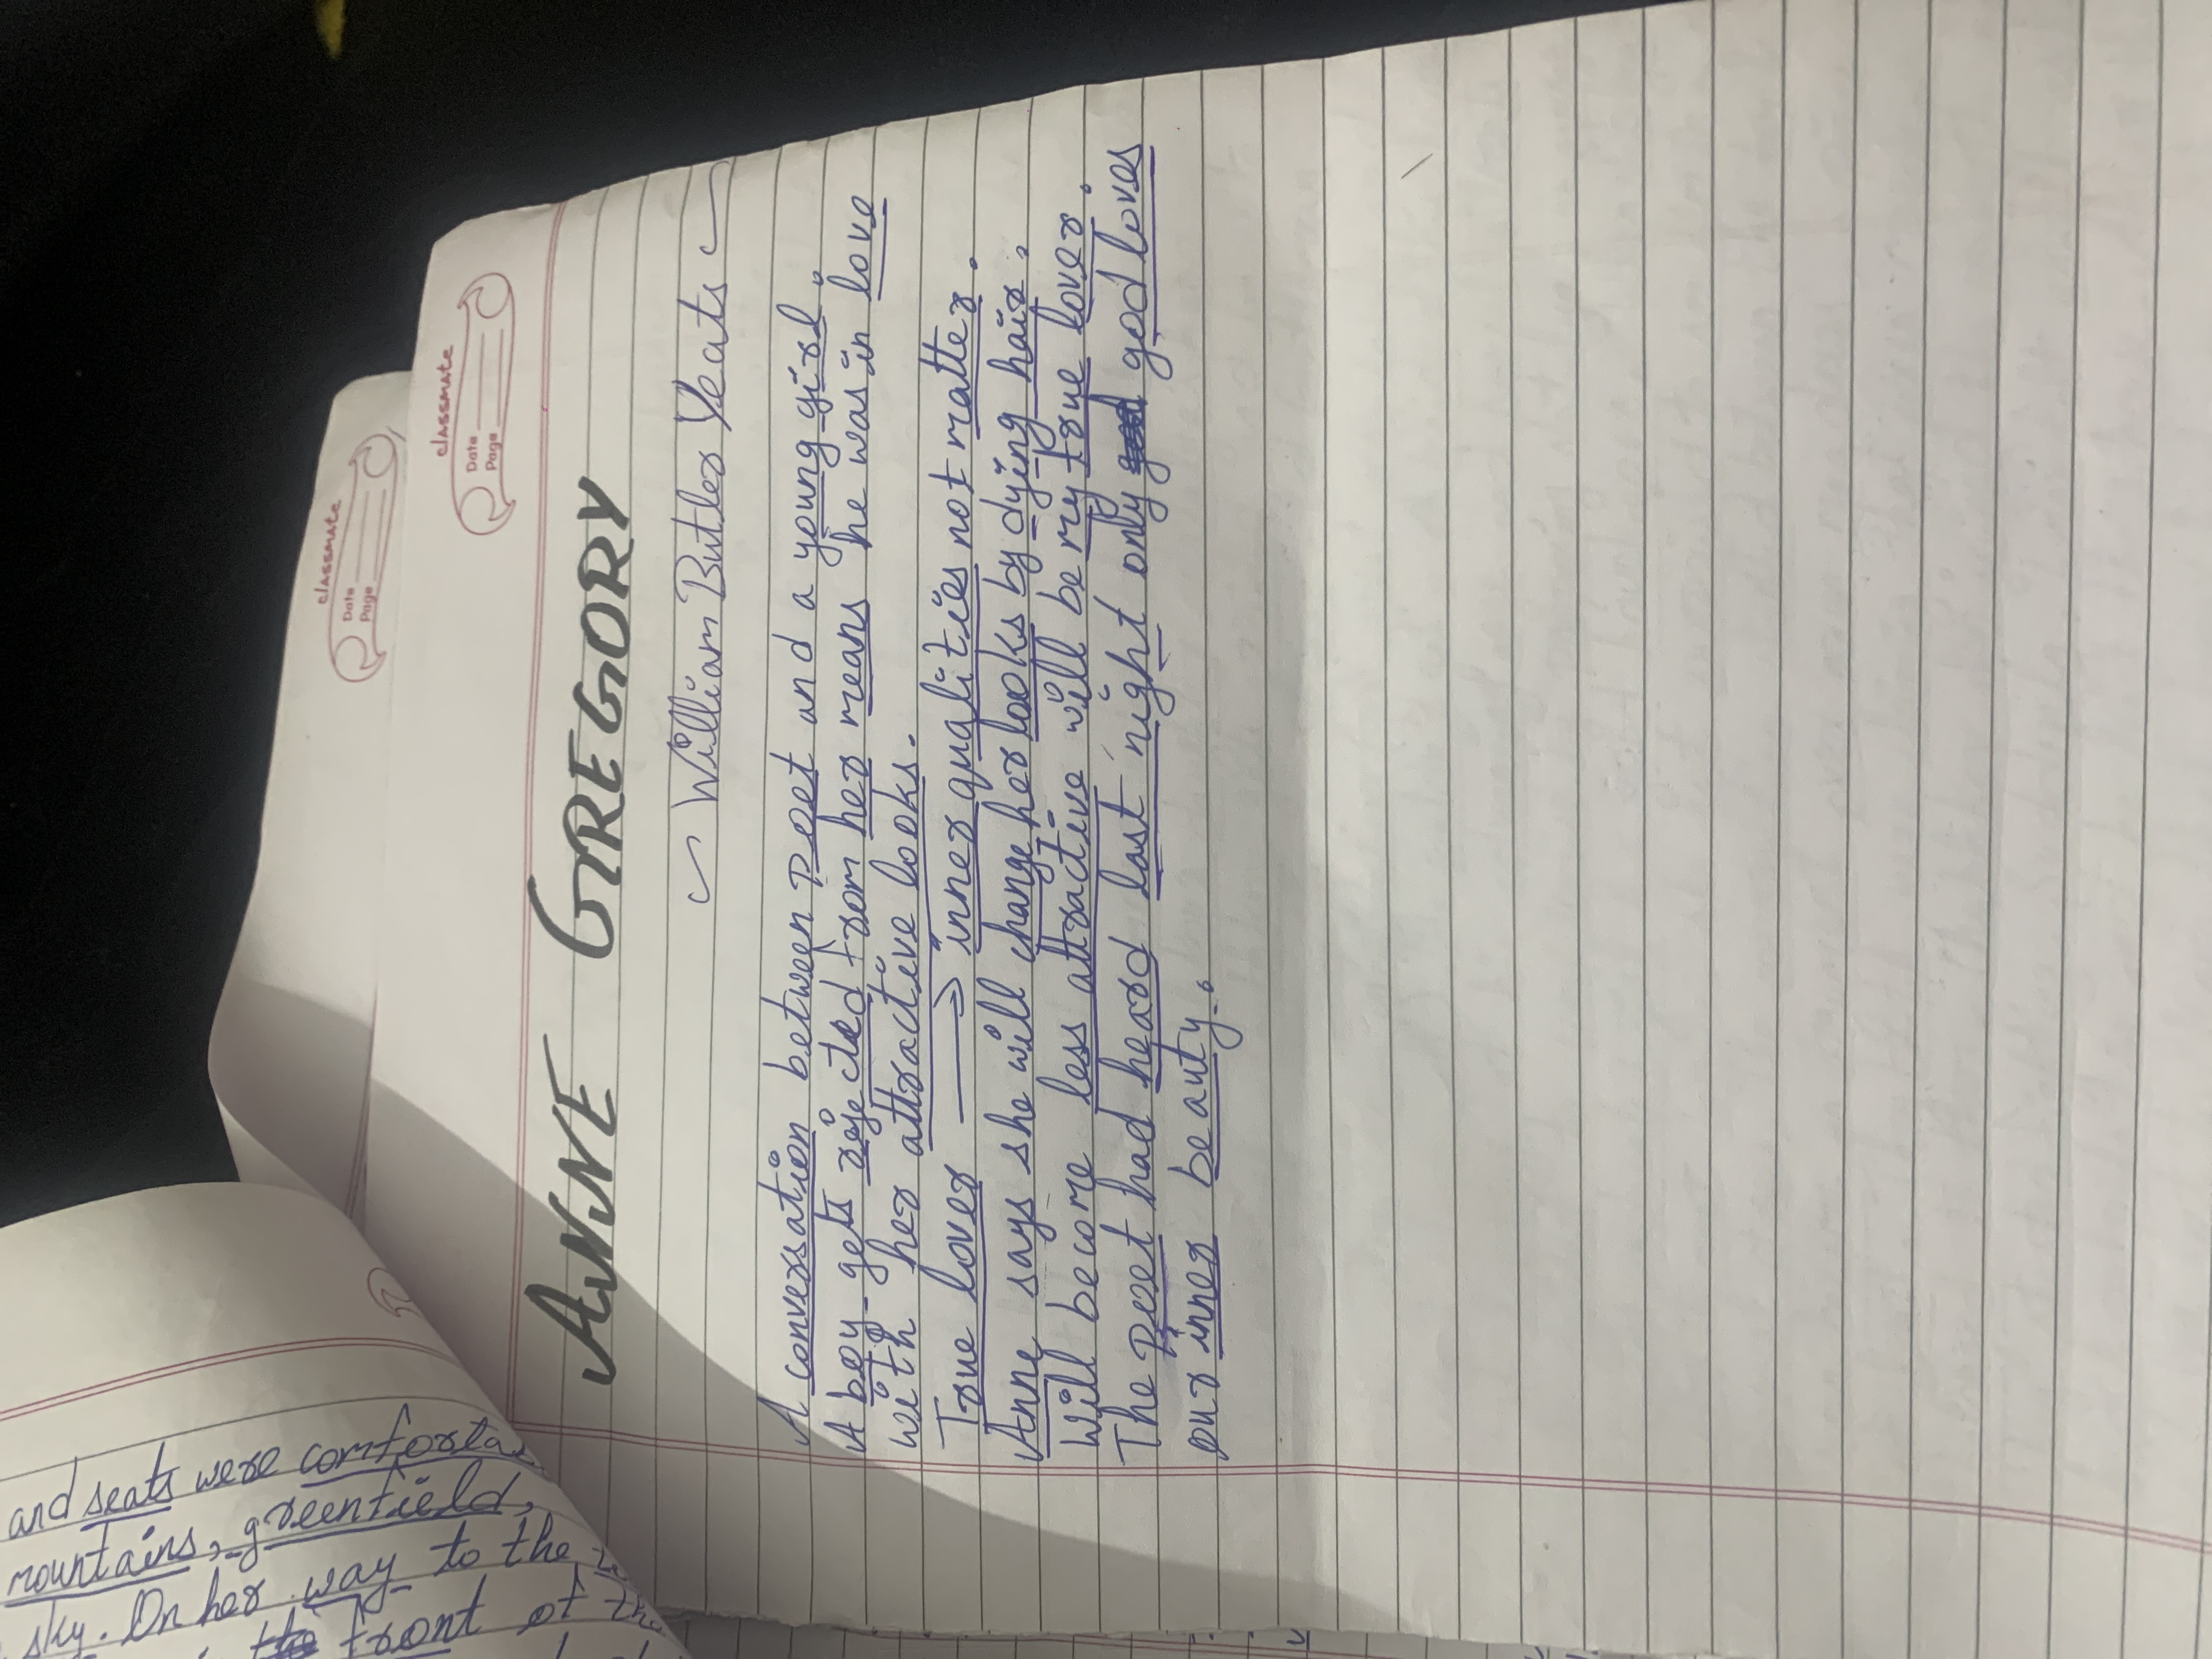 and seats were
mountains,
greenfield,
sky. On her way to the
front of the
classmate
Date
Page
classmate
Date
Page
ANNE GREGORY
~ William Butler Yeats ~
A conversation between poet and a young girl.
A boy gets rejected from her means he was in love
with her attractive looks.
True lover → inner qualities not matter.
Anne says she will change her looks by dying hair.
Will become less attractive will be my true lover.
The poet had heard last night only god loves
our inner beauty.